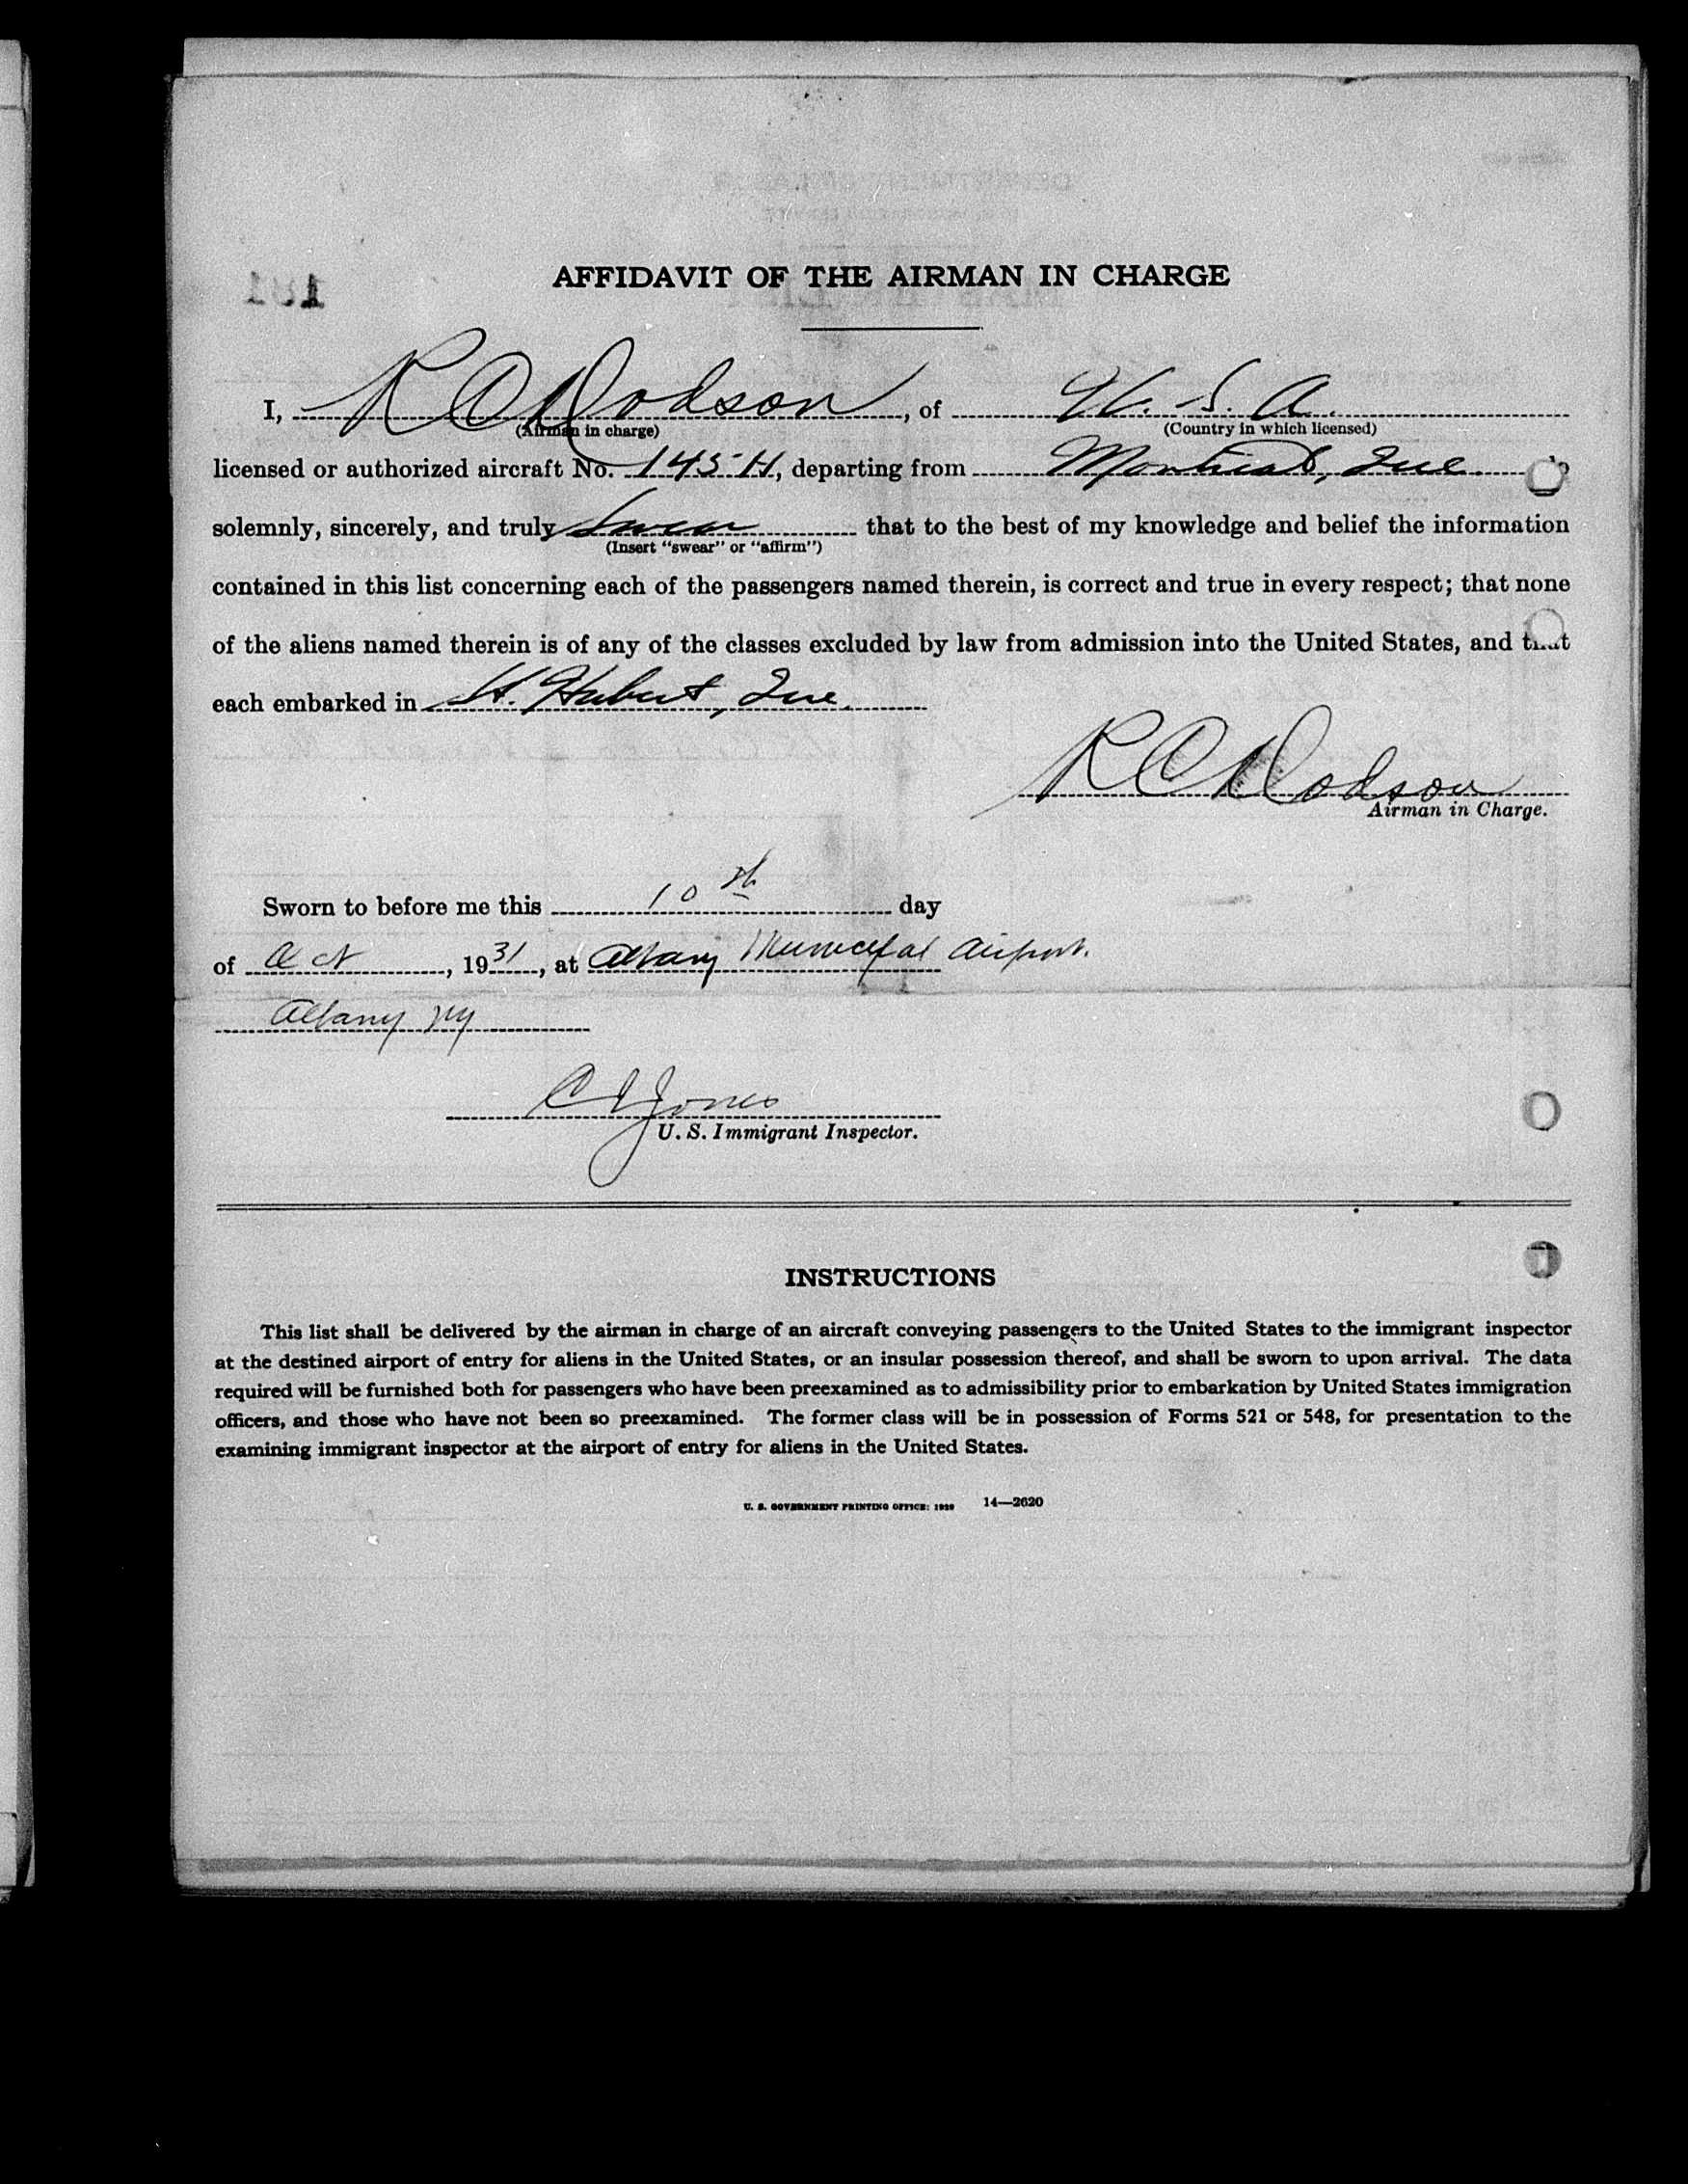 AFFIDAVIT OF THE AIRMAN IN CHARGE
I, R O Dodson, of U. S. A.
(Airman in charge) (Country in which licensed)
licensed or authorized aircraft No. 145 H, departing from Montreal, Que
solemnly, sincerely, and truly Swear that to the best of my knowledge and belief the information
(Insert "swear" or "affirm")
contained in this list concerning each of the passengers named therein, is correct and true in every respect; that none
of the aliens named therein is of any of the classes excluded by law from admission into the United States, and that
each embarked in St. Hubert, Que.
R O Dodson
Airman in Charge.
Sworn to before me this 10th day
of Oct, 1931, at Albany Municipal Airport.
Albany NY
C I Jones
U. S. Immigrant Inspector.
INSTRUCTIONS
This list shall be delivered by the airman in charge of an aircraft conveying passengers to the United States to the immigrant inspector
at the destined airport of entry for aliens in the United States, or an insular possession thereof, and shall be sworn to upon arrival. The data
required will be furnished both for passengers who have been preexamined as to admissibility prior to embarkation by United States immigration
officers, and those who have not been so preexamined. The former class will be in possession of Forms 521 or 548, for presentation to the
examining immigrant inspector at the airport of entry for aliens in the United States.
U. S. GOVERNMENT PRINTING OFFICE: 1929 14—2620